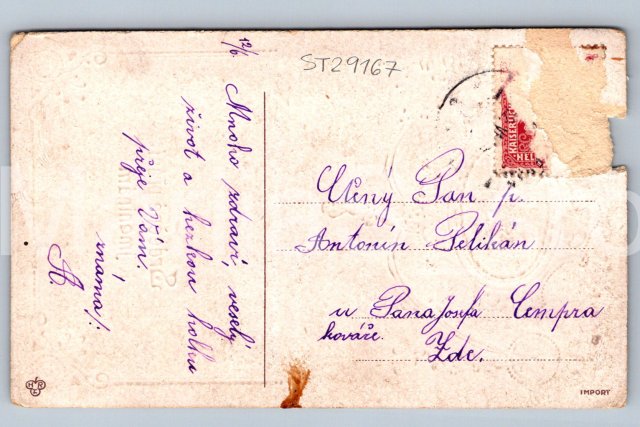 12/6.
Mnoho zdraví, veselý
život a hezkou holku
přeje Vám.
známa/:
A.
ST29167
KAISERL
HEL
Ctěný Pan p.
Antonín Pelikán
u Pana Josefa Cempra
kováře.
Zde.
IMPORT